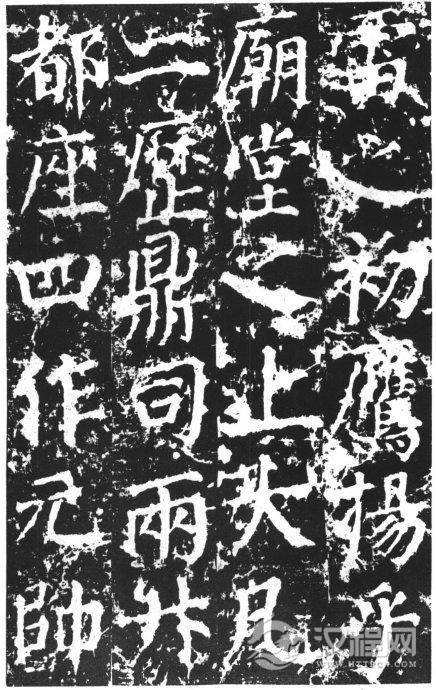 雷之初鷹揚乎
廟堂之上大凡
二歷鼎司兩升
都座四作元帥
汉程网
WWW.HTTPCN.COM